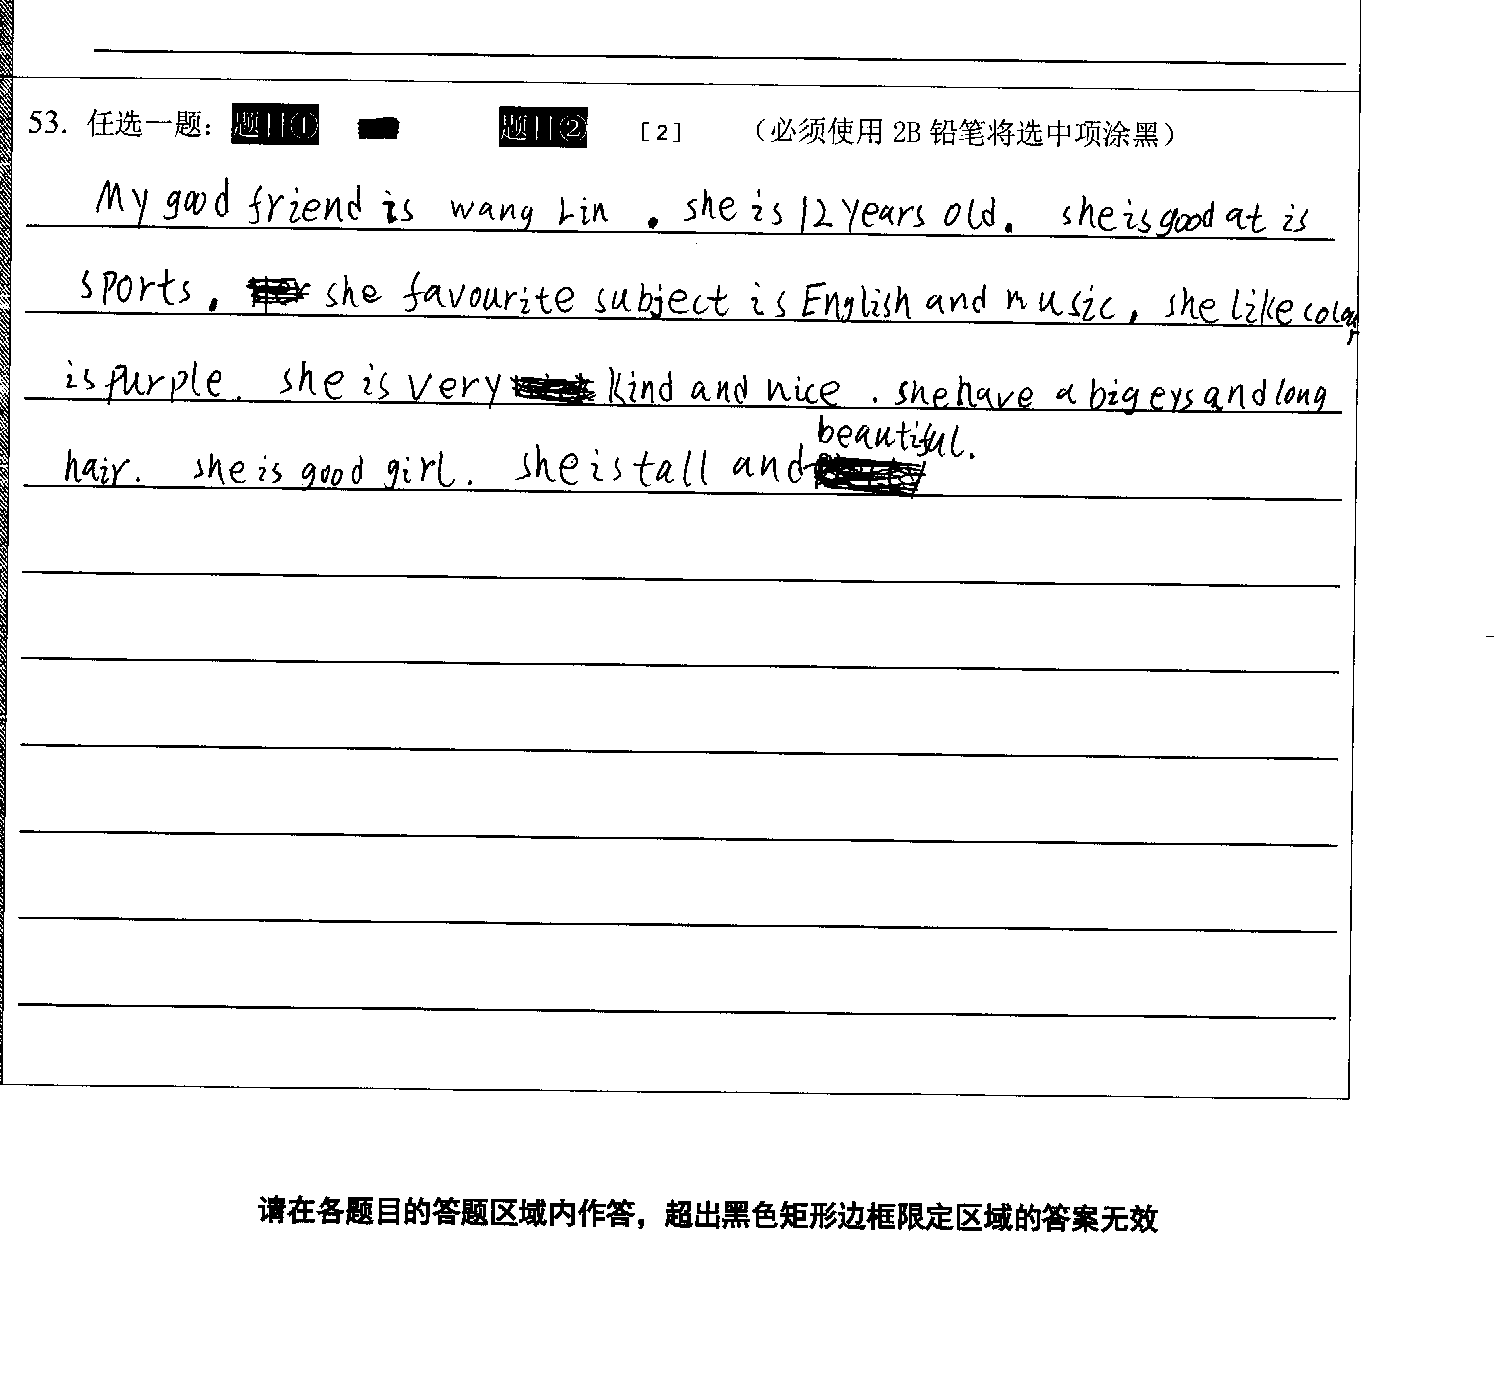 53. 任选一题： 题目① 题目② [2] （必须使用 2B 铅笔将选中项涂黑）
My good friend is wang Lin . she is 12 years old. she is good at is
sports. she favourite subject is English and music. she like colour
is purple. she is very kind and nice . she have a big eys and long
hair. she is good girl. she is tall and beautiful.
请在各题目的答题区域内作答，超出黑色矩形边框限定区域的答案无效